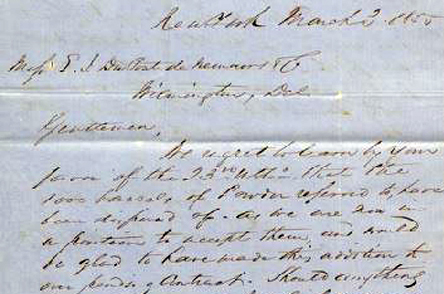 New York March 2 1855
Messrs E. I. DuPont de Nemours & Co
Wilmington, Del
Gentlemen,
We regret to learn by your
favor of the 23rd Ulto that the
barrels of Powder referred to, have
been disposed of - as we are now in
a position to accept them, and would
be glad to have made this addition to
our Contract. Should anything